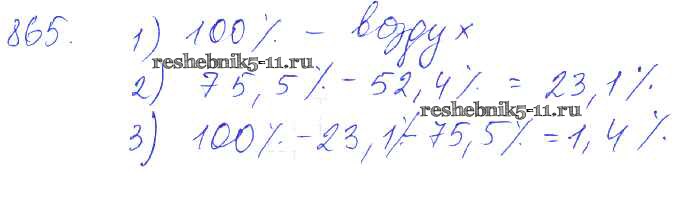 865. 1) 100% - воздух
reshebnik5-11.ru
2) 75,5% - 52,4% = 23,1%
reshebnik5-11.ru
3) 100% - 23,1% - 75,5% = 1,4%